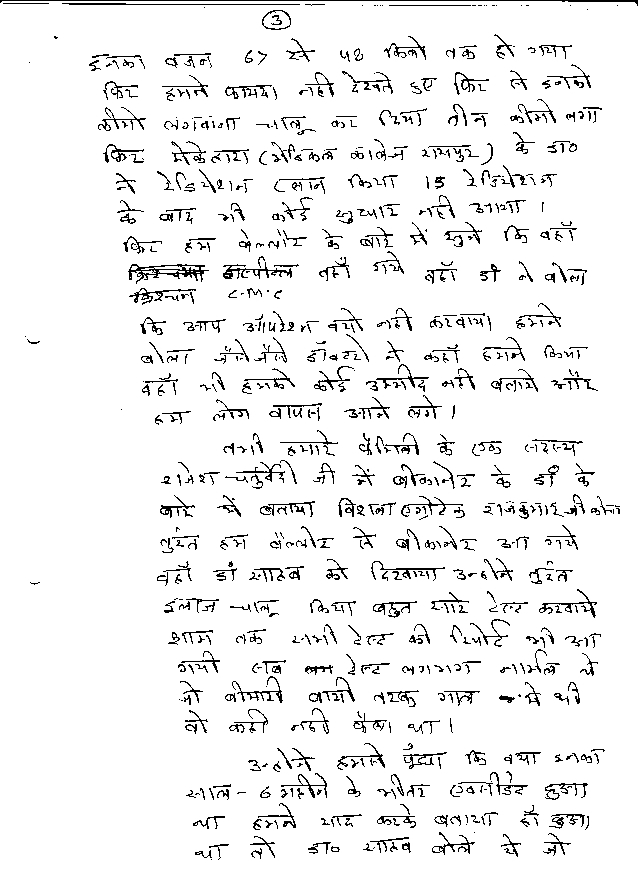 3
इनका वजन 67 से 48 किलो तक हो गया
फिर हमने फायदा नही देखते हुए फिर से इनको
कीमो लगवाना चालू कर दिया तीन कीमो लगा
फिर मेकेहारा (मेडिकल कालेज रायपुर) के डा०
ने रेडियेशन प्लान किया 15 रेडियेशन
के बाद भी कोई सुधार नही आया ।
फिर हम वेल्लौर के बारे में सुने कि वहाँ
वहाँ गये वहाँ डॉ ने बोला
क्रिश्चन C.M.C
कि आप ऑपरेशन क्यो नही करवाया हमने
बोला जैसे जैसे डॉक्टरो ने कहाँ हमने किया
वहाँ भी हमको कोई उम्मीद नही बताये और
हम लोग वापस आने लगे ।
तभी हमारे फैमिली के एक सदस्य
राजेश चतुर्वेदी जी में बीकानेर के डॉ के
बारे में बताया विशला एग्रोटेक राजकुमार जी
तुरंत हम वेल्लोर से बीकानेर आ गये
वहाँ डॉ साहब को दिखाया उन्होने तुरंत
इलाज चालू किया बहुत सारे टेस्ट करवाये
शाम तक सभी टेस्ट की रिपोर्ट भी आ
गयी सब टेस्ट लगभग नार्मल थे
जो बीमारी बायी तरफ गाल में थी
वो कही नही फैला था ।
उन्होने हमसे पूँछा कि क्या इनका
साल - 6 महीने के भीतर एक्सीडेंट हुआ
था हमने याद करके बताया हाँ हुआ
था तो डा० साहब बोले ये जो